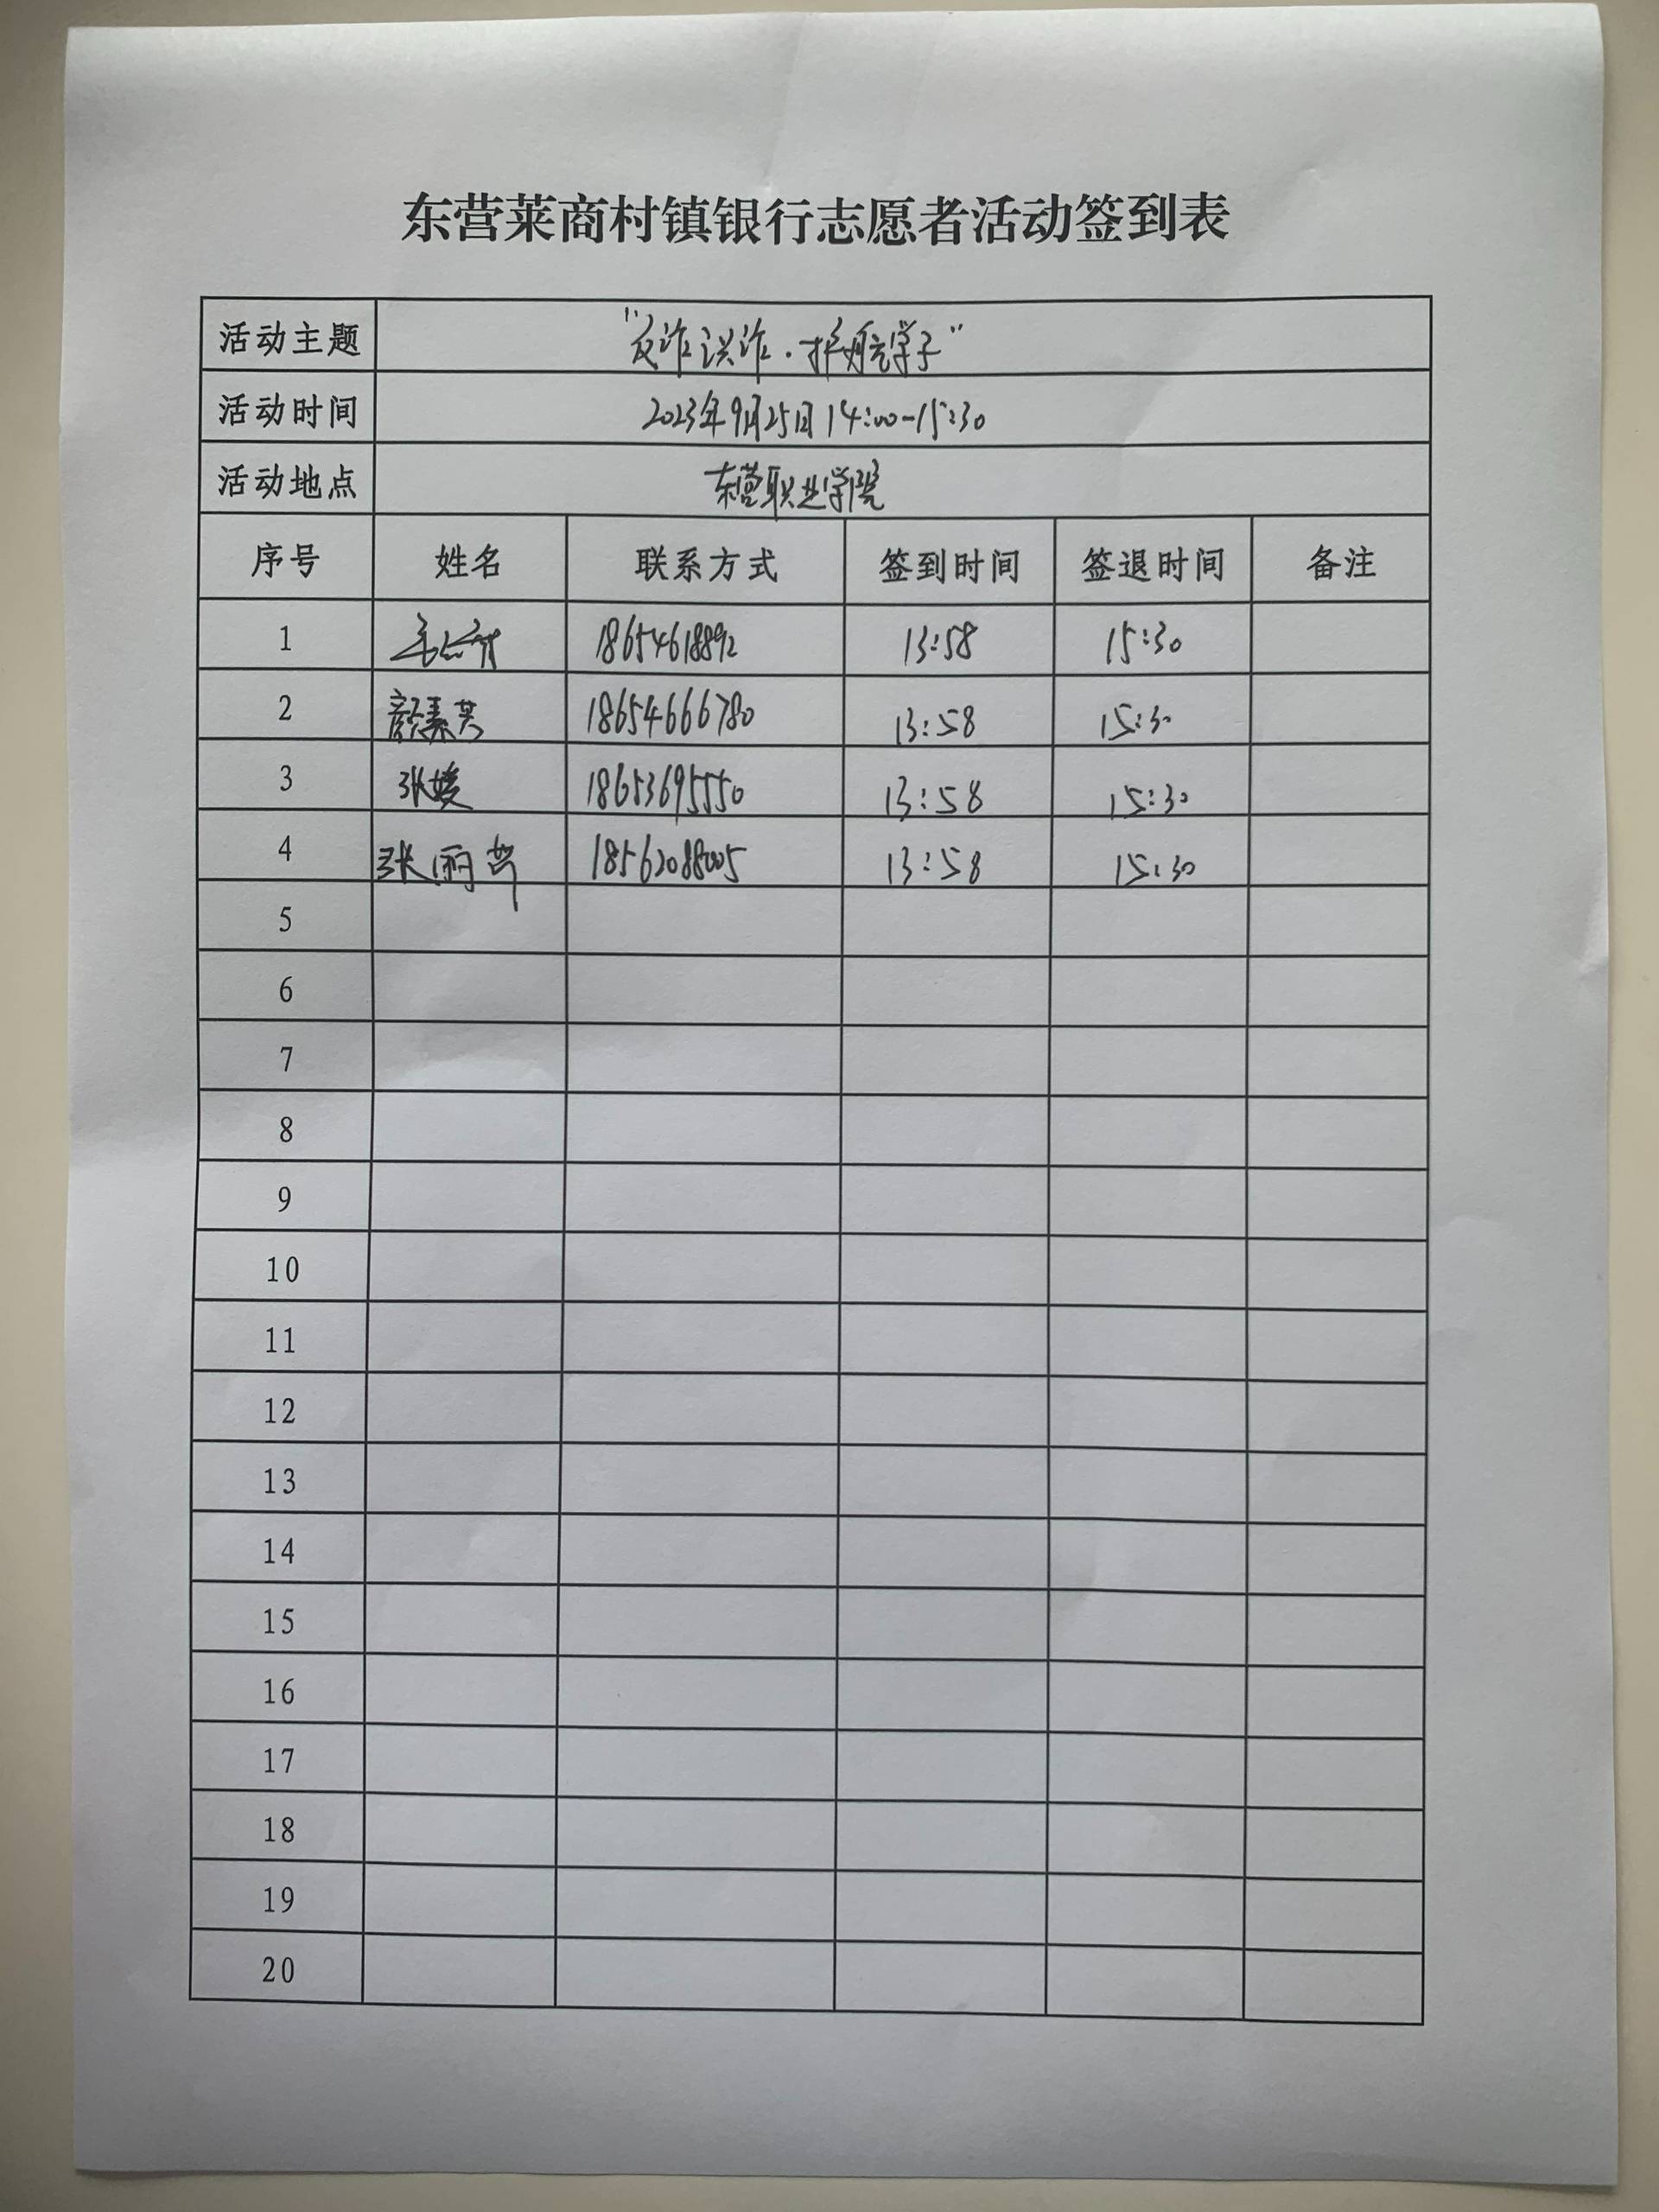 东营莱商村镇银行志愿者活动签到表
活动主题 "反诈识诈·护航学子"
活动时间 2023年9月25日 14:00-15:30
活动地点 东营职业学院
序号 姓名 联系方式 签到时间 签退时间 备注
1 18654618892 13:58 15:30
2 颜素英 18654666780 13:58 15:30
3 张媛 18653695550 13:58 15:30
4 张丽 18562088005 13:58 15:30
5
6
7
8
9
10
11
12
13
14
15
16
17
18
19
20